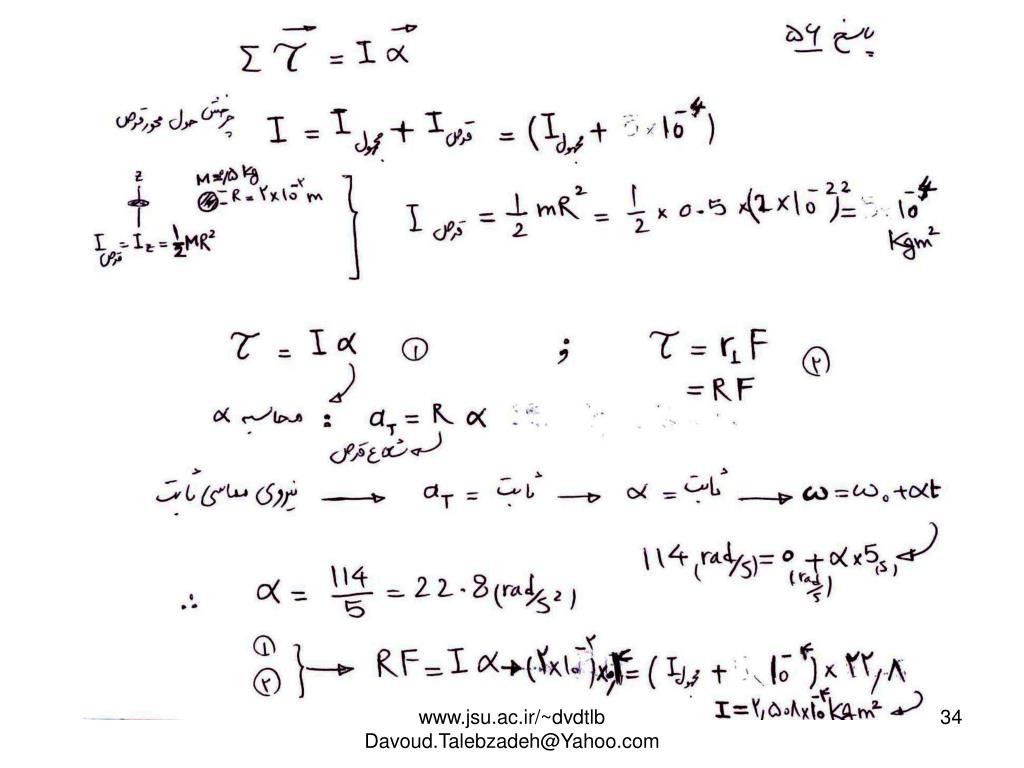 پاسخ ۵۶
Σ τ = I α
چرخش حول محور قرص
I = I مجهول + I قرص = (I مجهول + 5×10⁻⁴)
z
R = ۲×10⁻² m
I قرص = I z = 1/2 MR²
I قرص = 1/2 mR² = 1/2 × 0.5 × (2×10⁻²)² = 10⁻⁴
Kgm²
τ = I α ① ; τ = r⊥ F ②
= RF
محاسبه α : a_T = R α
شعاع قرص
نیروی مماسی ثابت → a_T = ثابت → α = ثابت → ω = ω₀ + αt
114 (rad/s) = 0 (rad/s) + α × 5(s)
∴ α = 114/5 = 22.8 (rad/s²)
①
② } → RF = I α → (۲×10⁻²) × = (I مجهول + 10⁻⁴) × ۲۲,۸
I = ۲,۵۰۸×10⁻⁴ kgm²
www.jsu.ac.ir/~dvdtlb
Davoud.Talebzadeh@Yahoo.com
34